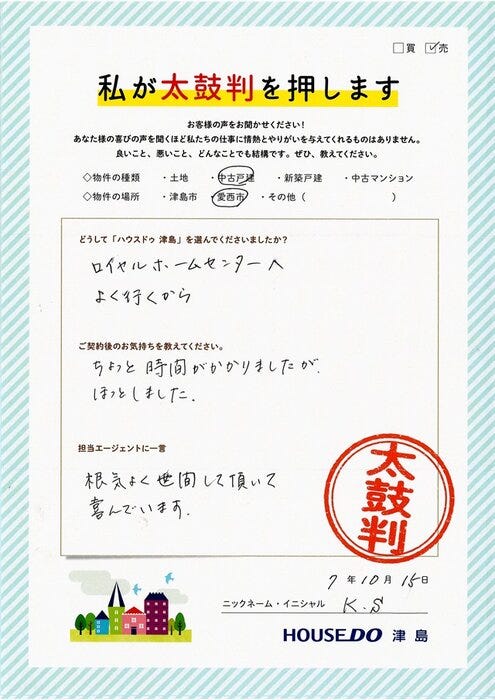 □買 ☑売
私が太鼓判を押します
お客様の声をお聞かせください！
あなた様の喜びの声を聞くほど私たちの仕事に情熱とやりがいを与えてくれるものはありません。
良いこと、悪いこと、どんなことでも結構です。ぜひ、教えてください。
◇物件の種類 ・土地 ・中古戸建 ・新築戸建 ・中古マンション
◇物件の場所 ・津島市 ・愛西市 ・その他（ ）
どうして「ハウスドゥ 津島」を選んでくださいましたか？
ロイヤルホームセンターへ
よく行くから
ご契約後のお気持ちを教えてください。
ちょっと時間がかかりましたが、
ほっとしました。
担当エージェントに一言
根気よく世間して頂いて
喜んでいます。
太鼓判
7年10月15日
ニックネーム・イニシャル K.S
HOUSEDO 津島